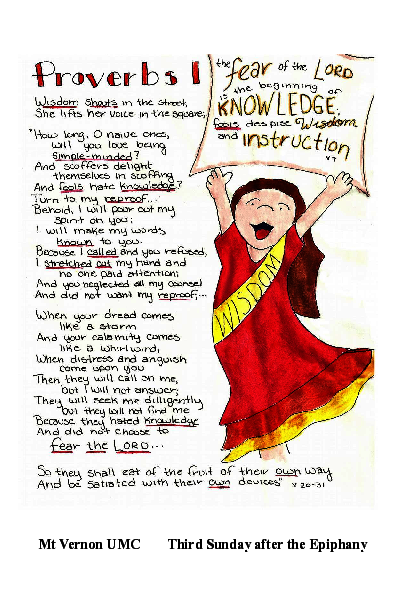 Proverbs 1
Wisdom shouts in the street,
She lifts her voice in the square;
"How long, O naive ones,
will you love being
simple-minded?
And scoffers delight
themselves in scoffing
And fools hate knowledge?
Turn to my reproof...
Behold, I will pour out my
spirit on you;
I will make my words
known to you.
Because I called and you refused,
I stretched out my hand and
no one paid attention;
And you neglected all my counsel
And did not want my reproof;...
When your dread comes
like a storm
And your calamity comes
like a whirlwind,
When distress and anguish
come upon you
Then they will call on me,
but I will not answer;
They will seek me diligently
but they will not find me
Because they hated knowledge
And did not choose to
fear the LORD...
So they shall eat of the fruit of their own way
And be satisted with their own devices" v 20-31
the fear of the LORD
is the beginning of
KNOWLEDGE;
fools despise Wisdom
and instruction
v7
WISDOM
Mt Vernon UMC Third Sunday after the Epiphany